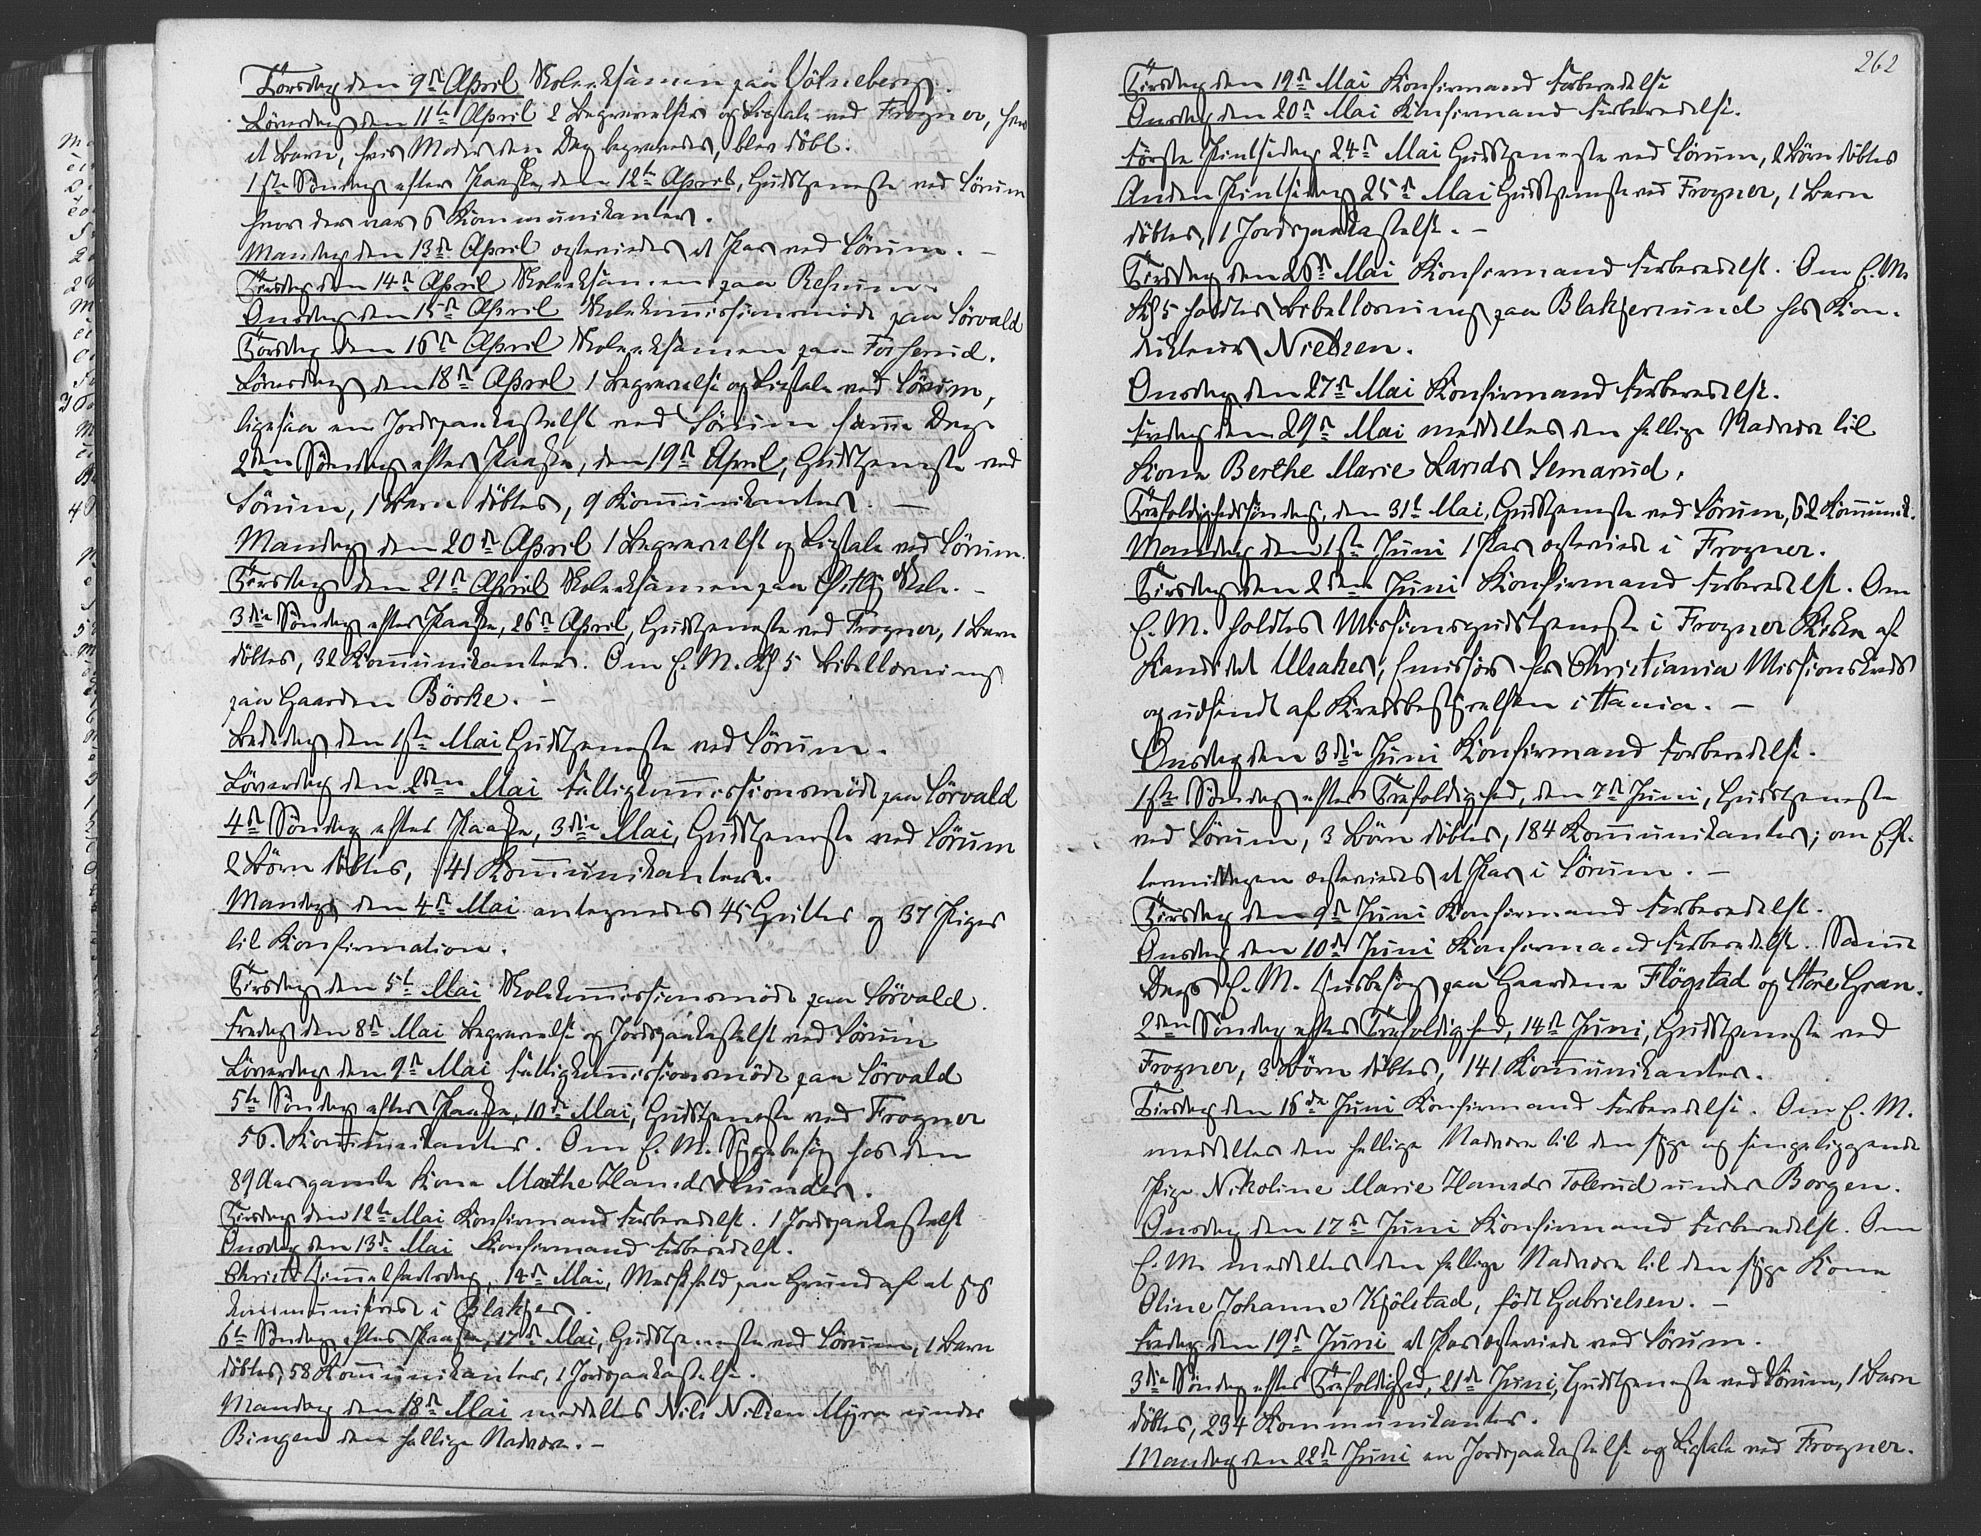 Torsdag den 9de April Skoleeksamen paa Vølneberg.
Løverdag den 11te April 2 Begravelser og Ligtale ved Frogner, hvor
et Barn, hvis Moder den Dag begravedes, blev døbt.
1ste Søndag efter Paaske, den 12te April, Gudstjeneste ved Sørum
hvor der var 6 Kommunikanter.
Mandag den 13de April ægteviedes et Par ved Sørum. –
Tirsdag den 14de April Skoleeksamen paa Refsum.
Onsdag den 15de April Skolekommissionsmøde paa Sørvald
Torsdag den 16de April Skoleeksamen paa Fosserud.
Løverdag den 18de April 1 Begravelse og Ligtale ved Sørum,
ligesaa en Jordspaakastelse ved Sørum samme Dag.
2den Søndag efter Paaske, den 19de April, Gudstjeneste ved
Sørum, 1 Barn døbtes, 9 Kommunikanter. –
Mandag den 20de April 1 Begravelse og Ligtale ved Sørum.
Tirsdag den 21de April Skoleeksamen paa Skole. –
3die Søndag efter Paaske, 26de April, Gudstjeneste ved Frogner, 1 Barn
døbtes, 32 Kommunikanter. Om E. M. Kl 5 Bibellæsning
paa Gaarden Børke. –
Bededag den 1ste Mai Gudstjeneste ved Sørum.
Løverdag den 2den Mai Fattigkommissionsmøde paa Sørvald
4de Søndag efter Paaske, 3die Mai, Gudstjeneste ved Sørum
2 Børn døbtes, 141 Kommunikanter.
Mandag den 4de Mai antegnedes 45 Gutter og 37 Piger
til Konfirmation.
Tirsdag den 5te Mai Skolekommissionsmøde paa Sørvald.
Fredag den 8de Mai Begravelse og Jordspaakastelse ved Sørum
Løverdag den 9de Mai Fattigkommissionsmøde paa Sørvald
5te Søndag efter Paaske, 10de Mai, Gudstjeneste ved Frogner
56. Kommunikanter. Om E. M. Sygebesøg hos den
89 Aar gamle Kone Mathe Hansd.
Tirsdag den 12te Mai Konfirmand Forberedelse. 1 Jordspaakastelse
Onsdag den 13de Mai Konfirmand Forberedelse.
Christi Himmelfartsdag, 14de Mai, Messefald paa Grund af at jeg
kommunicerede i Blakjer.
6te Søndag efter Paaske, 17de Mai, Gudstjeneste ved Sørum, 1 Barn
døbtes, 58 Kommunikanter, 1 Jordspaakastelse.
Mandag den 18de Mai meddeltes Nils Nilsen Myra under
Bingen den hellige Nadvere. –
262
Tirsdag den 19de Mai Konfirmand Forberedelse
Onsdag den 20de Mai Konfirmand Forberedelse.
Første Pintsedag 24de Mai Gudstjeneste ved Sørum, 2 Børn døbtes
Anden Pintsedag 25de Mai Gudstjeneste ved Frogner, 1 Barn
døbtes, 1 Jordspaakastelse. –
Tirsdag den 26de Mai Konfirmand Forberedelse. Om E. M.
Kl 5 holdtes Bibellæsning paa Blakjersund hos Kon-
duktør Nielsen.
Onsdag den 27de Mai Konfirmand Forberedelse.
Fredag den 29de Mai meddeltes den hellige Nadvere til
Kone Berthe Marie Larsd. Semarud.
Trefoldighedssøndag, den 31te Mai, Gudstjeneste ved Sørum, 62 Kommunik.
Mandag den 1ste Juni 1 Par ægteviede i Frogner.
Tirsdag den 2den Juni Konfirmand Forberedelse. Om
E. M. holdtes Missionsgudstjeneste i Frogner Kirke af
Kandidat Ulsaker, Emissær for Christiania Missionskreds
og udsendt af Kredsbestyrelsen i Hania. –
Onsdag den 3die Juni Konfirmand Forberedelse.
1ste Søndag efter Trefoldighed, den 7de Juni, Gudstjeneste
ved Sørum, 3 Børn døbtes, 184 Kommunikanter; om Ef-
termiddagen ægteviedes et Par i Sørum. –
Tirsdag den 9de Juni Konfirmand Forberedelse.
Onsdag den 10de Juni Konfirmand Forberedelse. Samme
Dags E. M. Husbesøg paa Gaardene Fløgstad og Store Gran.
2den Søndag efter Trefoldighed, 14de Juni, Gudstjeneste ved
Frogner, 3 Børn døbtes, 141 Kommunikanter.
Tirsdag den 16de Juni Konfirmand Forberedelse. Om E. M.
meddeltes den hellige Nadvere til den syge og sengeliggende
Pige Nikoline Marie Hansd. Tolerud under Borgen.
Onsdag den 17de Juni Konfirmand Forberedelse. Om
E. M. meddeltes den hellige Nadvere til den syge Kone
Oline Johanne Kjølstad, født Gabrielsen. –
Fredag den 19de Juni et Par ægteviede ved Sørum.
3die Søndag efter Trefoldighed, 21de Juni, Gudstjeneste ved Sørum, 1 Barn
døbtes, 234 Kommunikanter.
Mandag den 22de Juni en Jordspaakastelse og Ligtale ved Frogner.